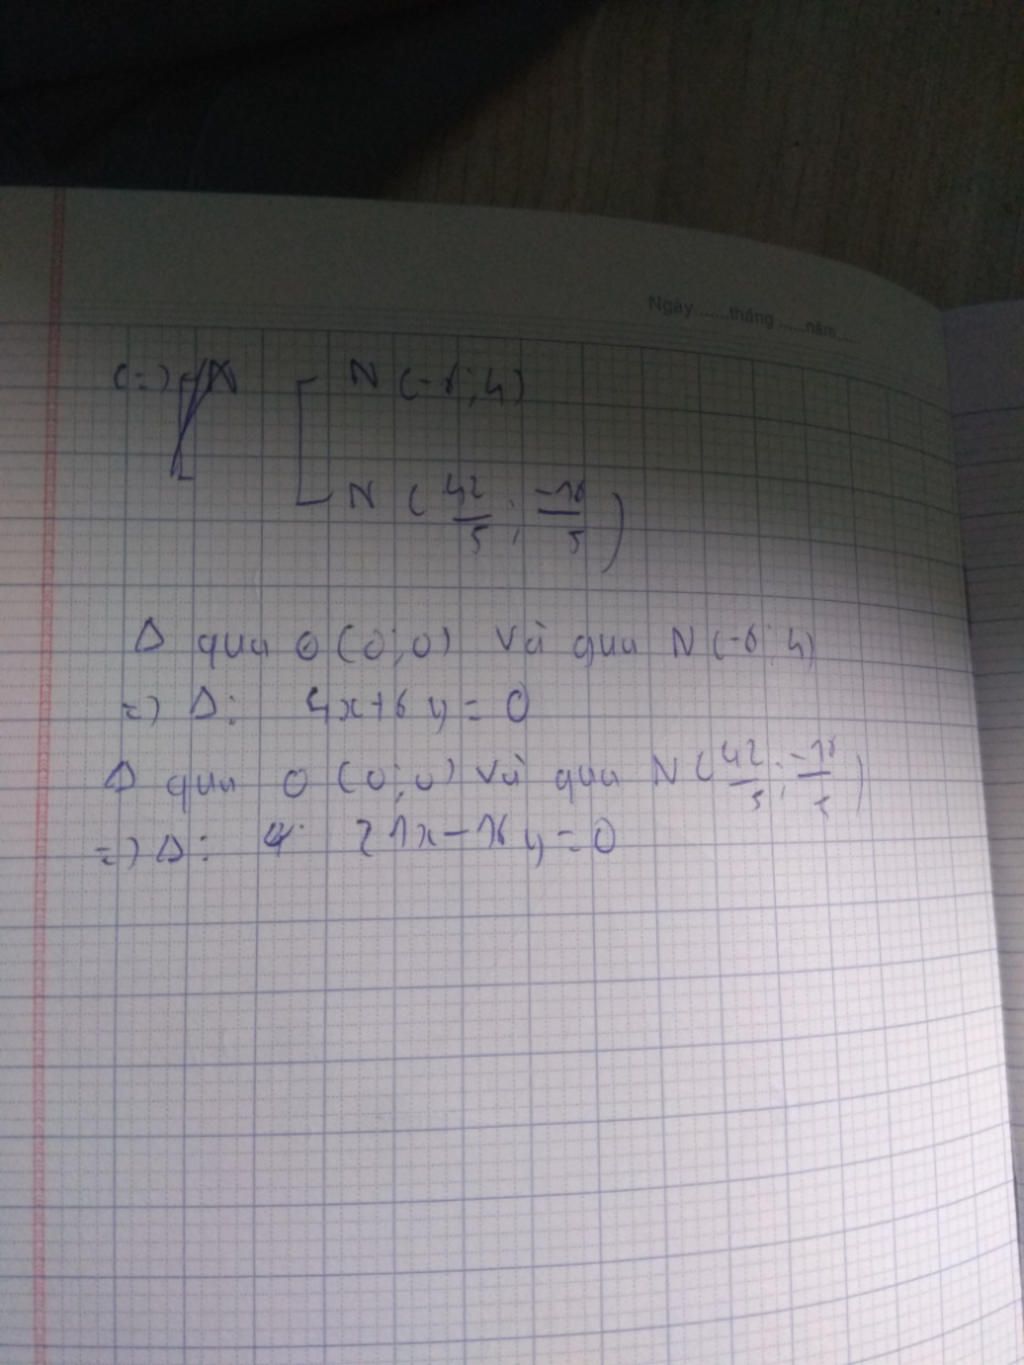 Ngày ...... tháng ...... năm ......
(=) N (-6; 4)
N (42/5; -16/5)
Δ qua O (0; 0) và qua N (-6; 4)
=) Δ: 4x + 6y = 0
Δ qua O (0; 0) và qua N (42/5; -16/5)
=) Δ: 21x - 16y = 0